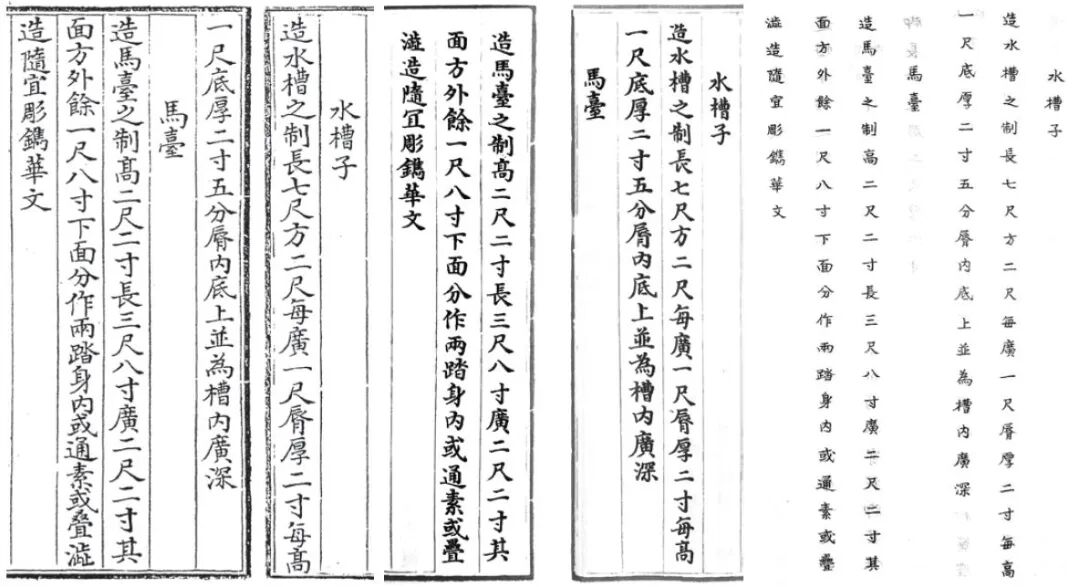 水槽子
造水槽之制長七尺方二尺每廣一尺脣厚二寸每高
一尺底厚二寸五分脣内底上並為槽内廣深
馬臺
造馬臺之制高二尺二寸長三尺八寸廣二尺二寸其
面方外餘一尺八寸下面分作兩踏身内或通素或疊
澁造隨宜彫鐫華文
水槽子
造水槽之制長七尺方二尺每廣一尺脣厚二寸每髙
一尺底厚二寸五分脣内底上並為槽内廣深
馬臺
造馬臺之制髙二尺二寸長三尺八寸廣二尺二寸其
面方外餘一尺八寸下面分作兩踏身内或通素或疊
澁造隨冝彫鐫華文
水槽子
造水槽之制長七尺方二尺每廣一尺脣厚二寸每髙
一尺底厚二寸五分脣内底上並為槽内廣深
馬臺
造馬臺之制髙二尺二寸長三尺八寸廣二尺二寸其
面方外餘一尺八寸下面分作兩踏身内或通素或疊澁
造隨宜彫鐫華文